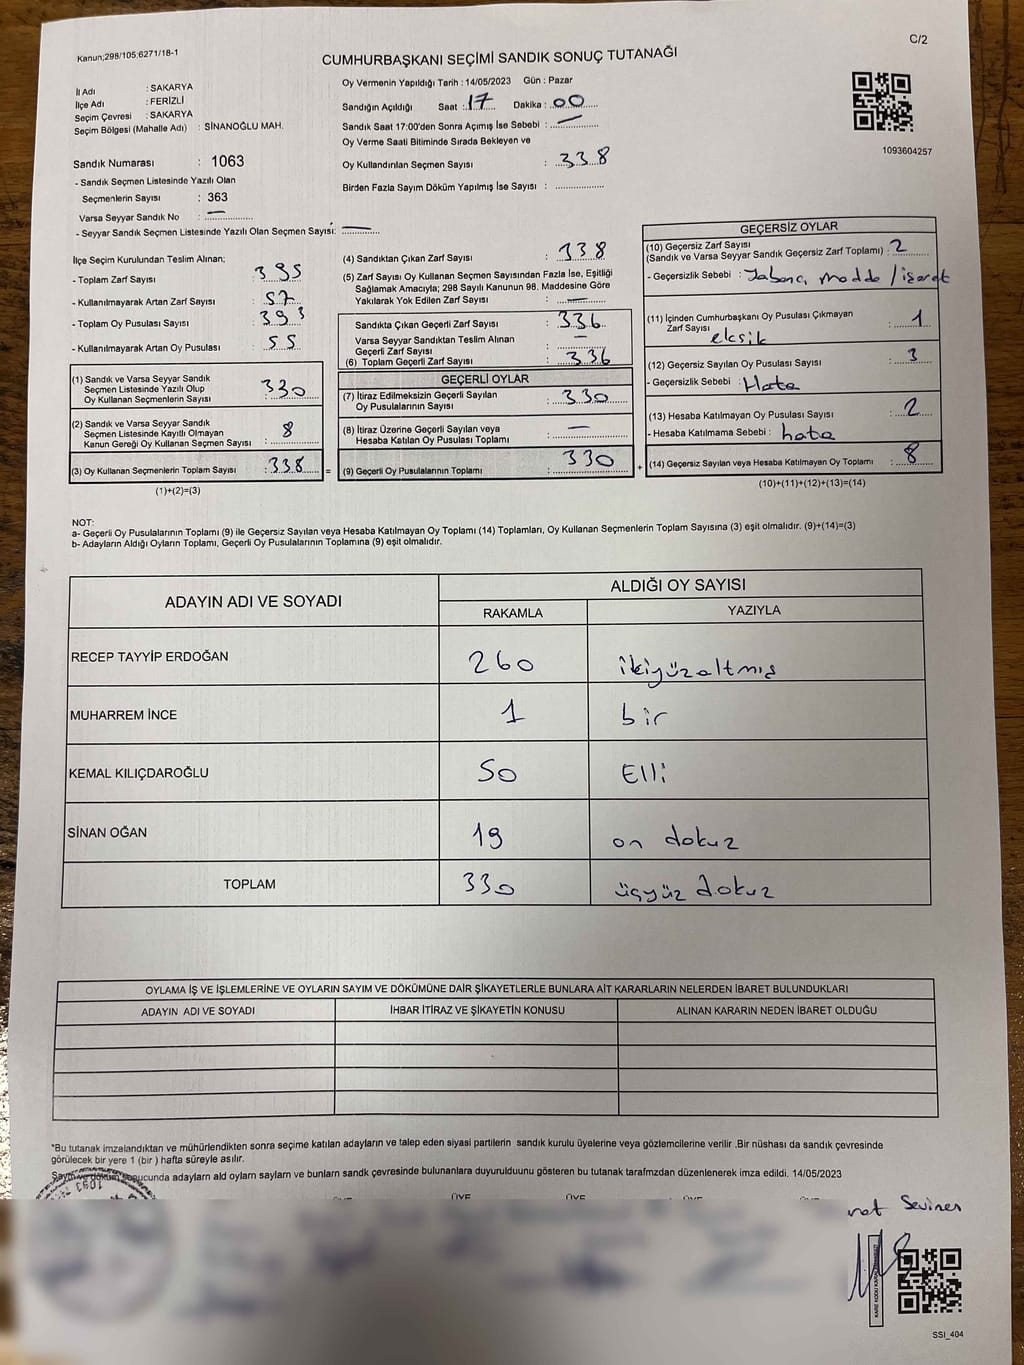 Kanun;298/105;6271/18-1
C/2
CUMHURBAŞKANI SEÇİMİ SANDIK SONUÇ TUTANAĞI
İl Adı : SAKARYA
İlçe Adı : FERİZLİ
Seçim Çevresi : SAKARYA
Seçim Bölgesi (Mahalle Adı) : SİNANOĞLU MAH.
Sandık Numarası : 1063
- Sandık Seçmen Listesinde Yazılı Olan
Seçmenlerin Sayısı : 363
Varsa Seyyar Sandık No : —
- Seyyar Sandık Seçmen Listesinde Yazılı Olan Seçmen Sayısı: —
Oy Vermenin Yapıldığı Tarih : 14/05/2023 Gün : Pazar
Sandığın Açıldığı Saat : 17 Dakika : 00
Sandık Saat 17:00'den Sonra Açımış İse Sebebi : —
Oy Verme Saati Bitiminde Sırada Bekleyen ve
Oy Kullandırılan Seçmen Sayısı : 338
Birden Fazla Sayım Döküm Yapılmış İse Sayısı :
1093604257
İlçe Seçim Kurulundan Teslim Alınan;
- Toplam Zarf Sayısı : 395
- Kullanılmayarak Artan Zarf Sayısı : 57
- Toplam Oy Pusulası Sayısı : 393
- Kullanılmayarak Artan Oy Pusulası : 55
(1) Sandık ve Varsa Seyyar Sandık
Seçmen Listesinde Yazılı Olup
Oy Kullanan Seçmenlerin Sayısı : 330
(2) Sandık ve Varsa Seyyar Sandık
Seçmen Listesinde Kayıtlı Olmayan
Kanun Gereği Oy Kullanan Seçmen Sayısı : 8
(3) Oy Kullanan Seçmenlerin Toplam Sayısı : 338
(1)+(2)=(3)
(4) Sandıktan Çıkan Zarf Sayısı : 338
(5) Zarf Sayısı Oy Kullanan Seçmen Sayısından Fazla İse, Eşitliği
Sağlamak Amacıyla; 298 Sayılı Kanunun 98. Maddesine Göre
Yakılarak Yok Edilen Zarf Sayısı : —
Sandıkta Çıkan Geçerli Zarf Sayısı : 336
Varsa Seyyar Sandıktan Teslim Alınan
Geçerli Zarf Sayısı : —
(6) Toplam Geçerli Zarf Sayısı : 336
GEÇERLİ OYLAR
(7) İtiraz Edilmeksizin Geçerli Sayılan
Oy Pusulalarının Sayısı : 330
(8) İtiraz Üzerine Geçerli Sayılan veya
Hesaba Katılan Oy Pusulası Toplamı : —
= (9) Geçerli Oy Pusulalarının Toplamı : 330
GEÇERSİZ OYLAR
(10) Geçersiz Zarf Sayısı
(Sandık ve Varsa Seyyar Sandık Geçersiz Zarf Toplamı) : 2
- Geçersizlik Sebebi : Yabancı madde / işaret
(11) İçinden Cumhurbaşkanı Oy Pusulası Çıkmayan
Zarf Sayısı : 1
eksik
(12) Geçersiz Sayılan Oy Pusulası Sayısı : 3
- Geçersizlik Sebebi : Hata
(13) Hesaba Katılmayan Oy Pusulası Sayısı : 2
- Hesaba Katılmama Sebebi : hata
+ (14) Geçersiz Sayılan veya Hesaba Katılmayan Oy Toplamı : 8
(10)+(11)+(12)+(13)=(14)
NOT:
a- Geçerli Oy Pusulalarının Toplamı (9) ile Geçersiz Sayılan veya Hesaba Katılmayan Oy Toplamı (14) Toplamları, Oy Kullanan Seçmenlerin Toplam Sayısına (3) eşit olmalıdır. (9)+(14)=(3)
b- Adayların Aldığı Oyların Toplamı, Geçerli Oy Pusulalarının Toplamına (9) eşit olmalıdır.
ADAYIN ADI VE SOYADI
ALDIĞI OY SAYISI
RAKAMLA YAZIYLA
RECEP TAYYİP ERDOĞAN 260 ikiyüzaltmış
MUHARREM İNCE 1 bir
KEMAL KILIÇDAROĞLU 50 Elli
SİNAN OĞAN 19 on dokuz
TOPLAM 330 üçyüz dokuz
OYLAMA İŞ VE İŞLEMLERİNE VE OYLARIN SAYIM VE DÖKÜMÜNE DAİR ŞİKAYETLERLE BUNLARA AİT KARARLARIN NELERDEN İBARET BULUNDUKLARI
ADAYIN ADI VE SOYADI İHBAR İTİRAZ VE ŞİKAYETİN KONUSU ALINAN KARARIN NEDEN İBARET OLDUĞU
*Bu tutanak imzalandıktan ve mühürlendikten sonra seçime katılan adayların ve talep eden siyasi partilerin sandık kurulu üyelerine veya gözlemcilerine verilir .Bir nüshası da sandık çevresinde
görülecek bir yere 1 (bir ) hafta süreyle asılır.
Sayım ve döküm sonucunda adayların ald oyların sayları ve bunların sandk çevresinde bulunanlara duyurulduunu gösteren bu tutanak tarafmzdan düzenlenerek imza edildi. 14/05/2023
1093
ÜYE ÜYE
Seviner
SSI_404